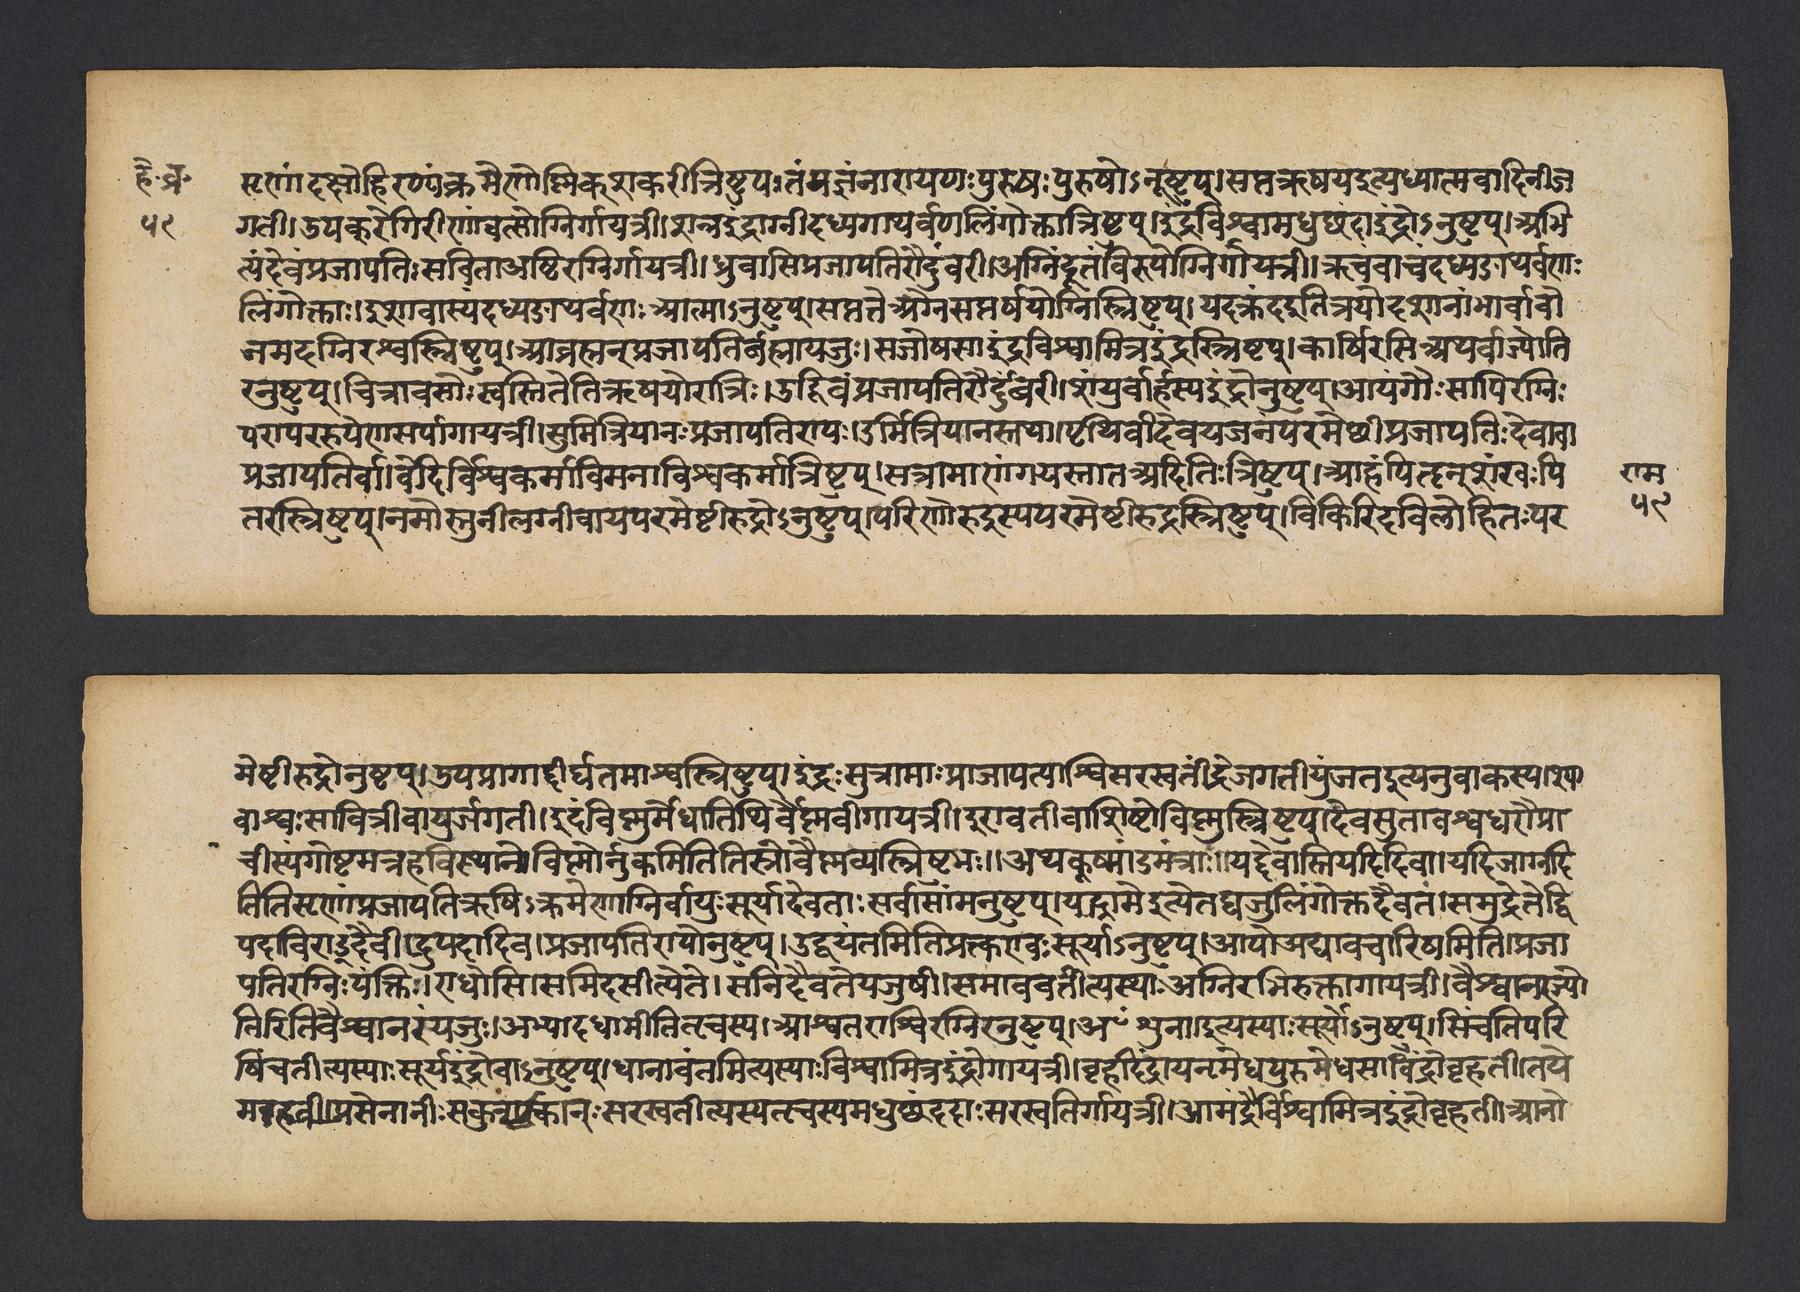 है॰प्र॰
५९
सृणां दक्षोहिरण्यंक्रमेणोष्णिक्शक्करीत्रिष्टुपः तंयज्ञंनारायणः पुरुषः पुरुषोऽनुष्टुप्।सप्तऋषयइत्यध्यात्मवादिनीज
गती।उपकुरेगिरीणांवत्सोग्निर्गायत्री।शन्नइंद्राग्नीदध्यगाथर्वणलिंगोक्तात्रिष्टुप्।इंद्रंविश्वामधुछंदाइंद्रोऽनुष्टुप्।अभि
त्यंदेवंप्रजापतिःसविताअष्टिरग्निर्गायत्री।ध्रुवासिप्रजापतिरौदुंबरी।अग्निंदूतंविरूपोग्निर्गायत्री।ऋचंवाचंदध्यङाथर्वणः
लिंगोक्ताः।इशावास्यंदध्यङाथर्वणःआत्माऽनुष्टुप्।सप्ततेअग्नेसप्तर्षयोग्निस्त्रिष्टुप्।यदक्रंददितित्रयोदशानांभार्वावो
जमदग्निरश्वस्त्रिष्टुप्।आब्रह्मन्प्रजापतिर्ब्रह्मायजुः।सजोषसाइंद्रविश्वामित्रइंद्रस्त्रिष्टुप्।कार्षिरसिअथर्वाज्योति
रनुष्टुप्।चित्रावसोःस्वस्तितेतिऋषयोरात्रिः।उद्दिवंप्रजापतिरौदुंबरी।शंयुर्बार्हस्पइंद्रोनुष्टुप्।आयंगौःसार्पिरग्निः
परापररूपेणसर्पागायत्री।सुमित्रियानःप्रजापतिरापः।दुर्मित्रियानस्तथा।पृथिवीदेवयजनपरमेष्ठीप्रजापतिःदेवावा
प्रजापतिर्वा।वेदिर्विश्वकर्माविमनाविश्वकर्मात्रिष्टुप्।सत्रामाणंगयस्तातअदितिःत्रिष्टुप्।आहंपितृन्शंखःपि
तरस्त्रिष्टुप्।नमोस्तुनीलग्रीवायपरमेष्टीरुद्रोऽनुष्टुप्।परिणोरुद्रस्यपरमेष्टीरुद्रस्त्रिष्टुप्।विकिरिदविलोहितःपर
राम
५९
मेष्टीरुद्रोनुष्टुप्।उपप्रागाद्दीर्घतमाश्वस्त्रिष्टुप्।इंद्रःसुत्रामाःप्राजापत्याश्विसरस्वतींद्रेजगतीयुंजतइत्यनुवाकस्य।श्या
वाश्वःसावित्रीवायुर्जगती।इदंविष्णुर्मेधातिथिर्वैष्णवीगायत्री।इरावतीवाशिष्टोविष्णुस्त्रिष्टुप्।देवसुतावश्वधरौप्रा
चीस्यंगोष्टमन्त्रहविस्थाने।विष्णोर्नुकमितितिस्रोवैष्णव्यस्त्रिष्टुभः॥अथकूष्मांडमंत्राः॥यद्देवास्तियदिदिवा।यदिजाग्रदि
तितिसृणांप्रजापतिऋषिऽक्रमेणाग्निर्वायुःसूर्योदेवताःसर्वासांमनुष्टुप्।यद्ग्रामेइत्येतद्यजुलिंगोक्तदैवतं।समुद्रेतेद्वि
पदाविराड्दैवी।द्रुपदादिव।प्रजापतिरापोनुष्टुप्।उद्वयंतमितिप्रस्कण्वःसूर्योऽनुष्टुप्।आपोअद्यावचारिषमिति।प्रजा
पतिरग्निःपंक्तिः।राधोसि।समिदसीत्येते।संनिदैवतेयजुषी।समाववर्तीत्यस्याःअग्निरभिरुक्तागायत्री।वैश्वानरज्यो
तिरितिवैश्वानरंयजुः।अभ्यादधामीतितृचस्य।आश्वतराश्विरग्निरनुष्टुप्।अꣳशुना।इत्यस्याःसूर्योऽनुष्टुप्।सिंचतिपरि
षिंचतीत्यस्याःसूर्यइंद्रोवाऽनुष्टुप्।धानावंतमित्यस्याःविश्वामित्रइंद्रोगायत्री।बृहदिंद्रायनृमेधपुरुमेधसाविंद्रोबृहती।तथे
सरस्वतीत्यस्यतृचस्यमधुछंददाःसरस्वतिर्गायत्री।आमंद्रैर्विश्वामित्रइंद्रोबृहती।आनो